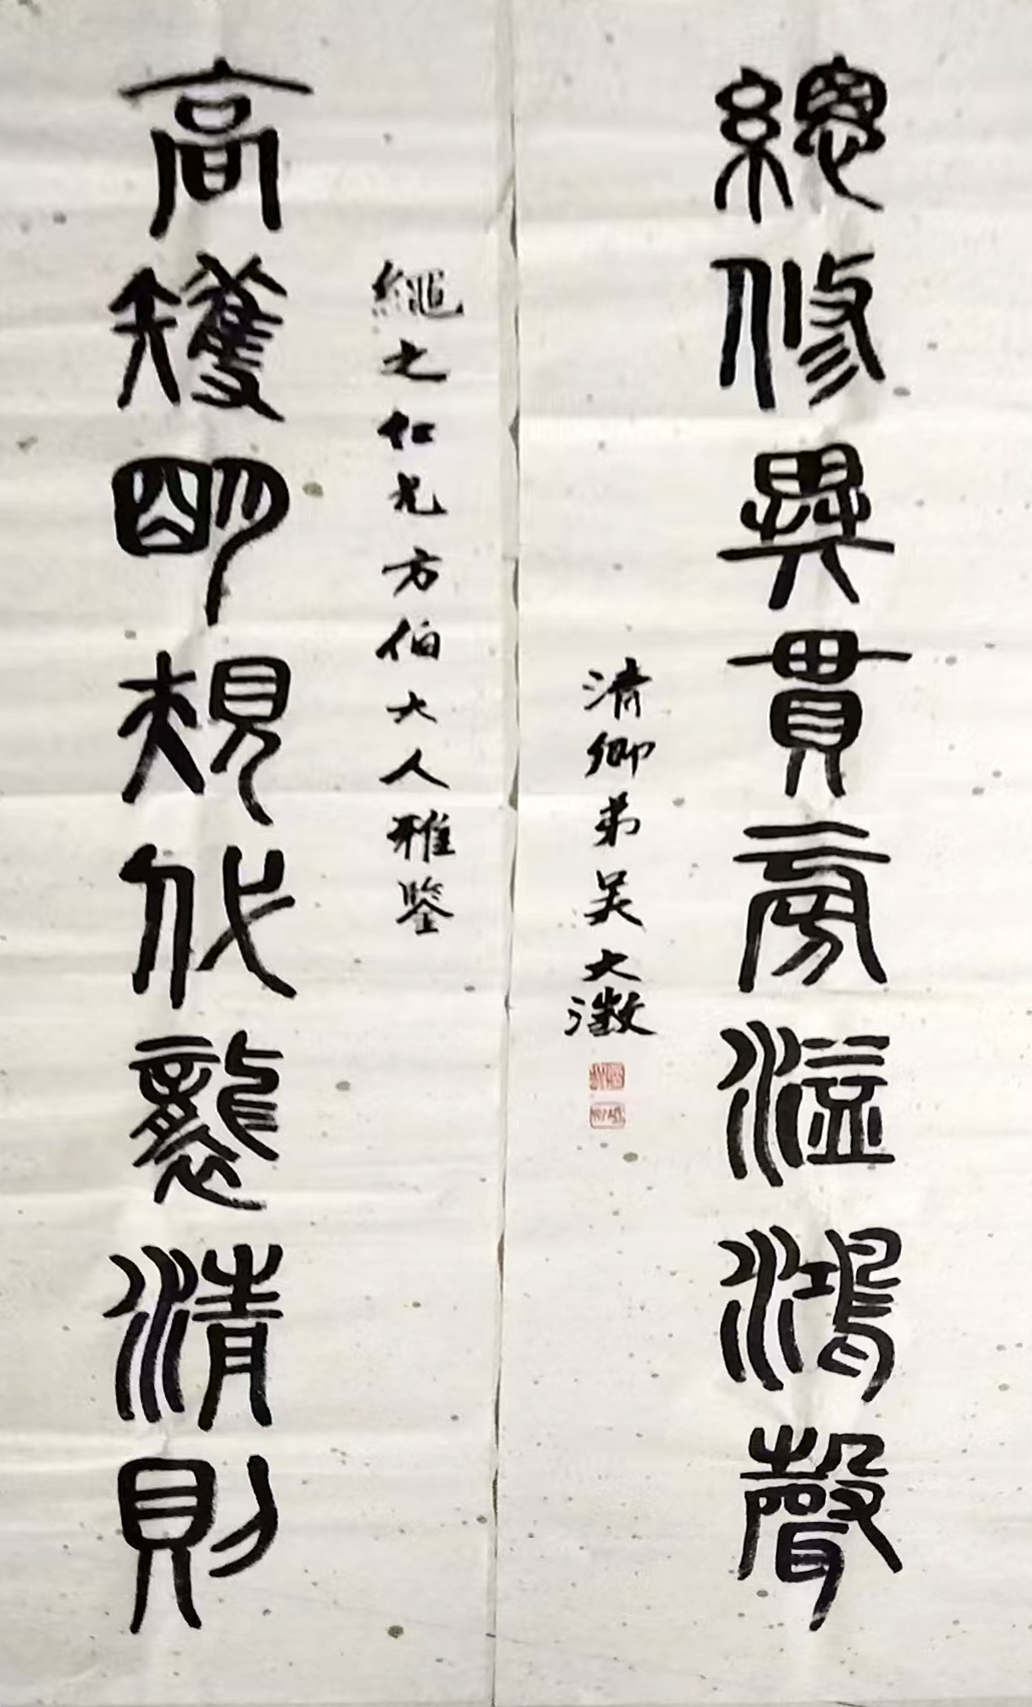 總修異貫旁溢鴻聲
清卿弟吳大澂
繩之仁兄方伯大人雅鑒
高矱朙規代襲清則